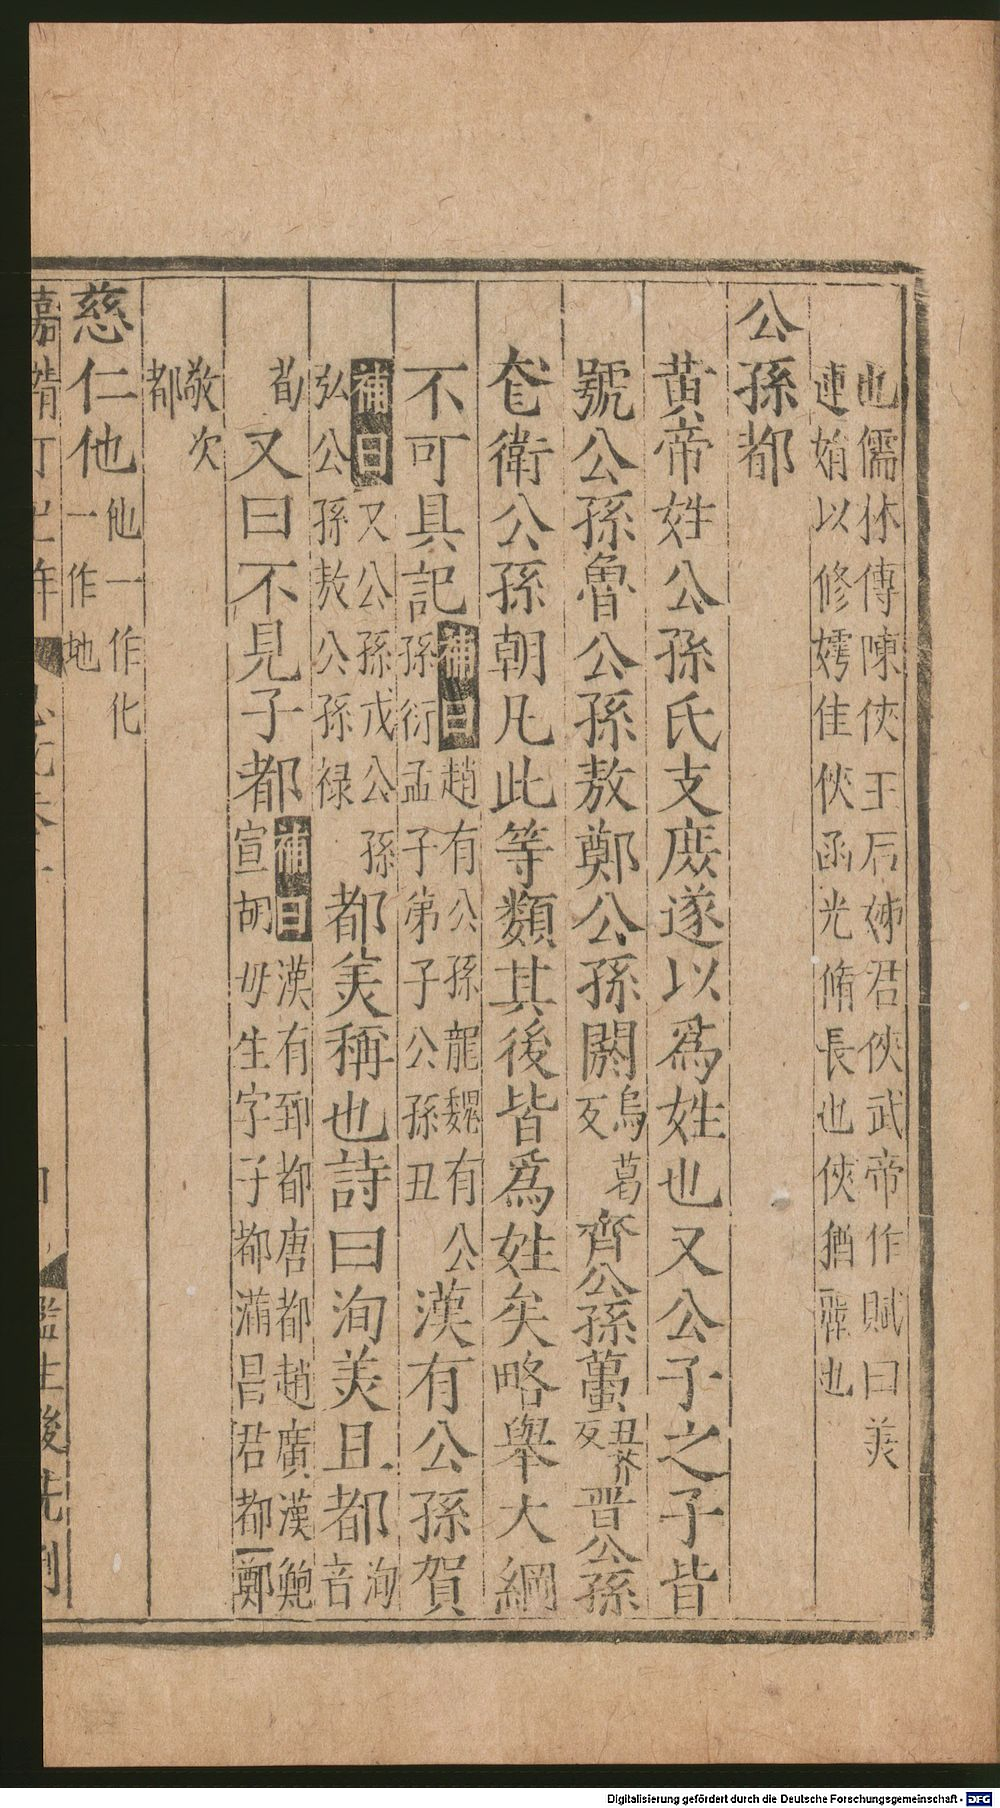 也儒林傳陳俠王后姊君俠武帝作賦曰美
連娟以修嫮佳俠函光脩長也俠猶麗也
公孫都
黃帝姓公孫氏支庶遂以爲姓也又公子之子皆
號公孫魯公孫敖鄭公孫閼烏葛反齊公孫蠆丑芥反晋公孫
尨衛公孫朝凡此等類其後皆爲姓矣略舉大綱
不可具記補曰趙有公孫龍魏有公孫衍孟子弟子公孫丑漢有公孫賀
補曰又公孫戎公孫弘公孫敖公孫禄都美稱也詩曰洵美且都洵音
荀又曰不見子都補曰漢有郅都唐都趙廣漢鮑宣胡母生字子都蒲昌君都鄭
敬次都
慈仁他他一作化他一作地
嘉靖丁巳年
監生後先刊
Digitalisierung gefördert durch die Deutsche Forschungsgemeinschaft - DFG